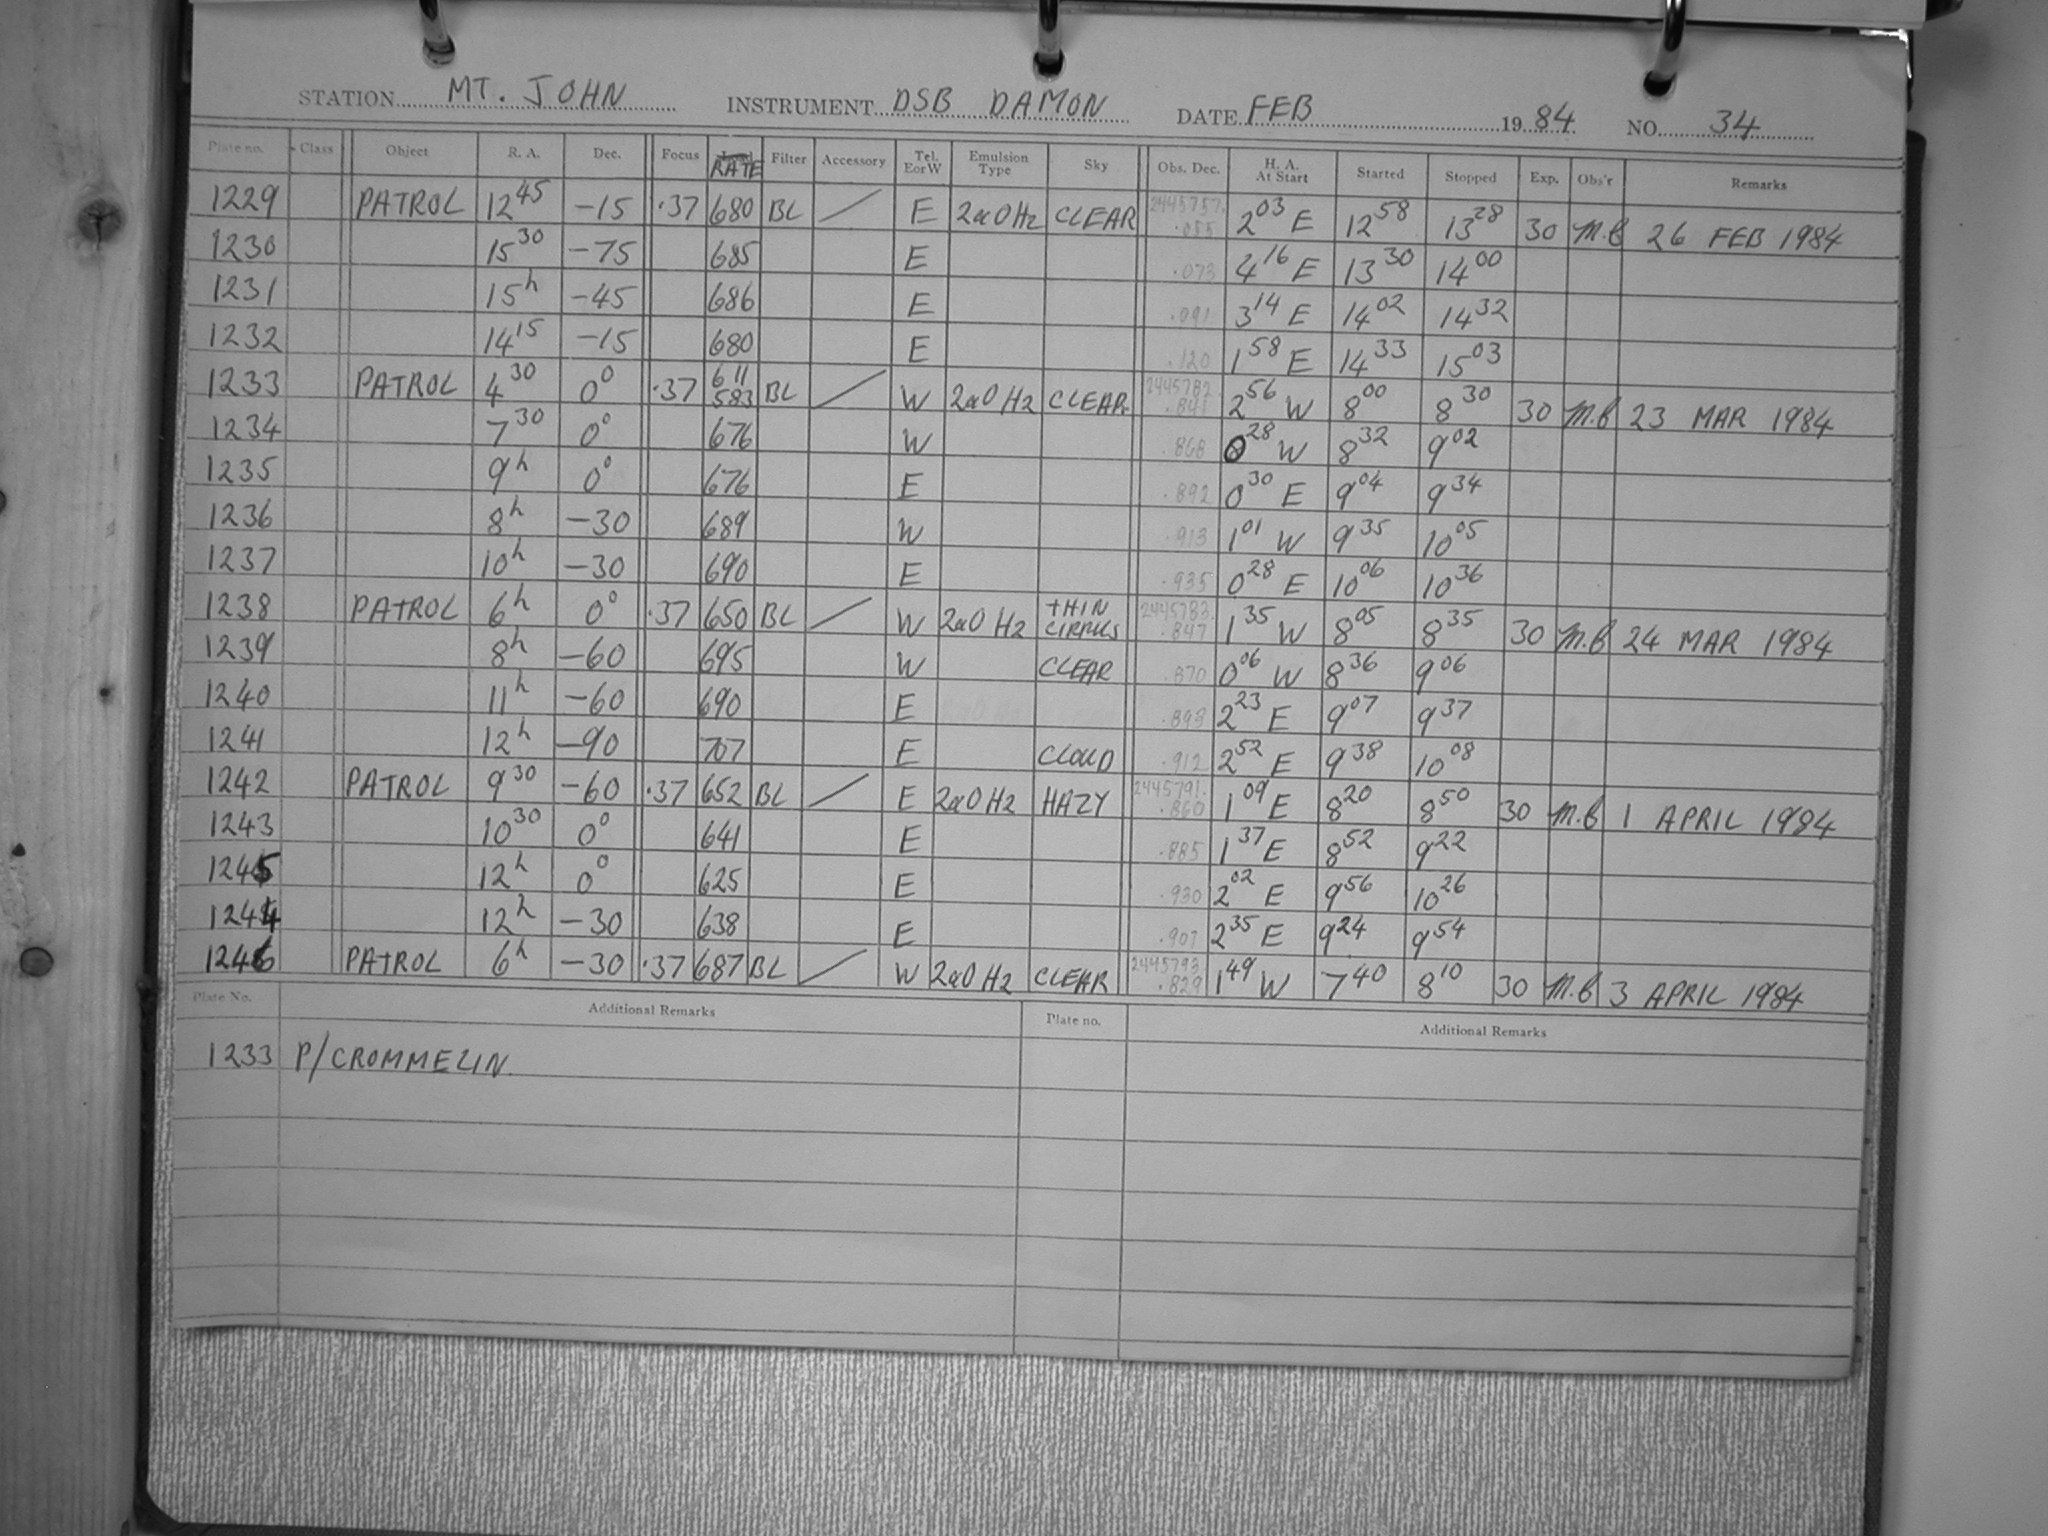 STATION MT. JOHN INSTRUMENT DSB DAMON DATE FEB 1984 NO. 34
Plate no. Class Object R. A. Dec. Focus RATE Filter Accessory Tel. E or W Emulsion Type Sky Obs. Dec. H. A. At Start Started Stopped Exp. Obs'r Remarks
1229 PATROL 12 45 -15 .37 680 BL / E 2aO H2 CLEAR 2445757. .055 2 03 E 12 58 13 28 30 M.B 26 FEB 1984
1230 15 30 -75 685 E .073 4 16 E 13 30 14 00
1231 15h -45 686 E .091 3 14 E 14 02 14 32
1232 14 15 -15 680 E .120 1 58 E 14 33 15 03
1233 PATROL 4 30 0° .37 611 583 BL / W 2aO H2 CLEAR 2445782. .841 2 56 W 8 00 8 30 30 M.B 23 MAR 1984
1234 7 30 0° 676 W .868 0 28 W 8 32 9 02
1235 9h 0° 676 E .892 0 30 E 9 04 9 34
1236 8h -30 689 W .913 1 01 W 9 35 10 05
1237 10h -30 690 E .935 0 28 E 10 06 10 36
1238 PATROL 6h 0° .37 650 BL / W 2aO H2 THIN CIRRUS 2445783. .847 1 35 W 8 05 8 35 30 M.B 24 MAR 1984
1239 8h -60 695 W CLEAR .870 0 06 W 8 36 9 06
1240 11h -60 690 E .893 2 23 E 9 07 9 37
1241 12h -90 707 E CLOUD .912 2 52 E 9 38 10 08
1242 PATROL 9 30 -60 .37 652 BL / E 2aO H2 HAZY 2445791. .860 1 09 E 8 20 8 50 30 M.B 1 APRIL 1984
1243 10 30 0° 641 E .885 1 37 E 8 52 9 22
1245 12h 0° 625 E .930 2 02 E 9 56 10 26
1244 12h -30 638 E .907 2 35 E 9 24 9 54
1246 PATROL 6h -30 .37 687 BL / W 2aO H2 CLEAR 2445793. .829 1 49 W 7 40 8 10 30 M.B 3 APRIL 1984
Plate No. Additional Remarks Plate no. Additional Remarks
1233 P/CROMMELIN